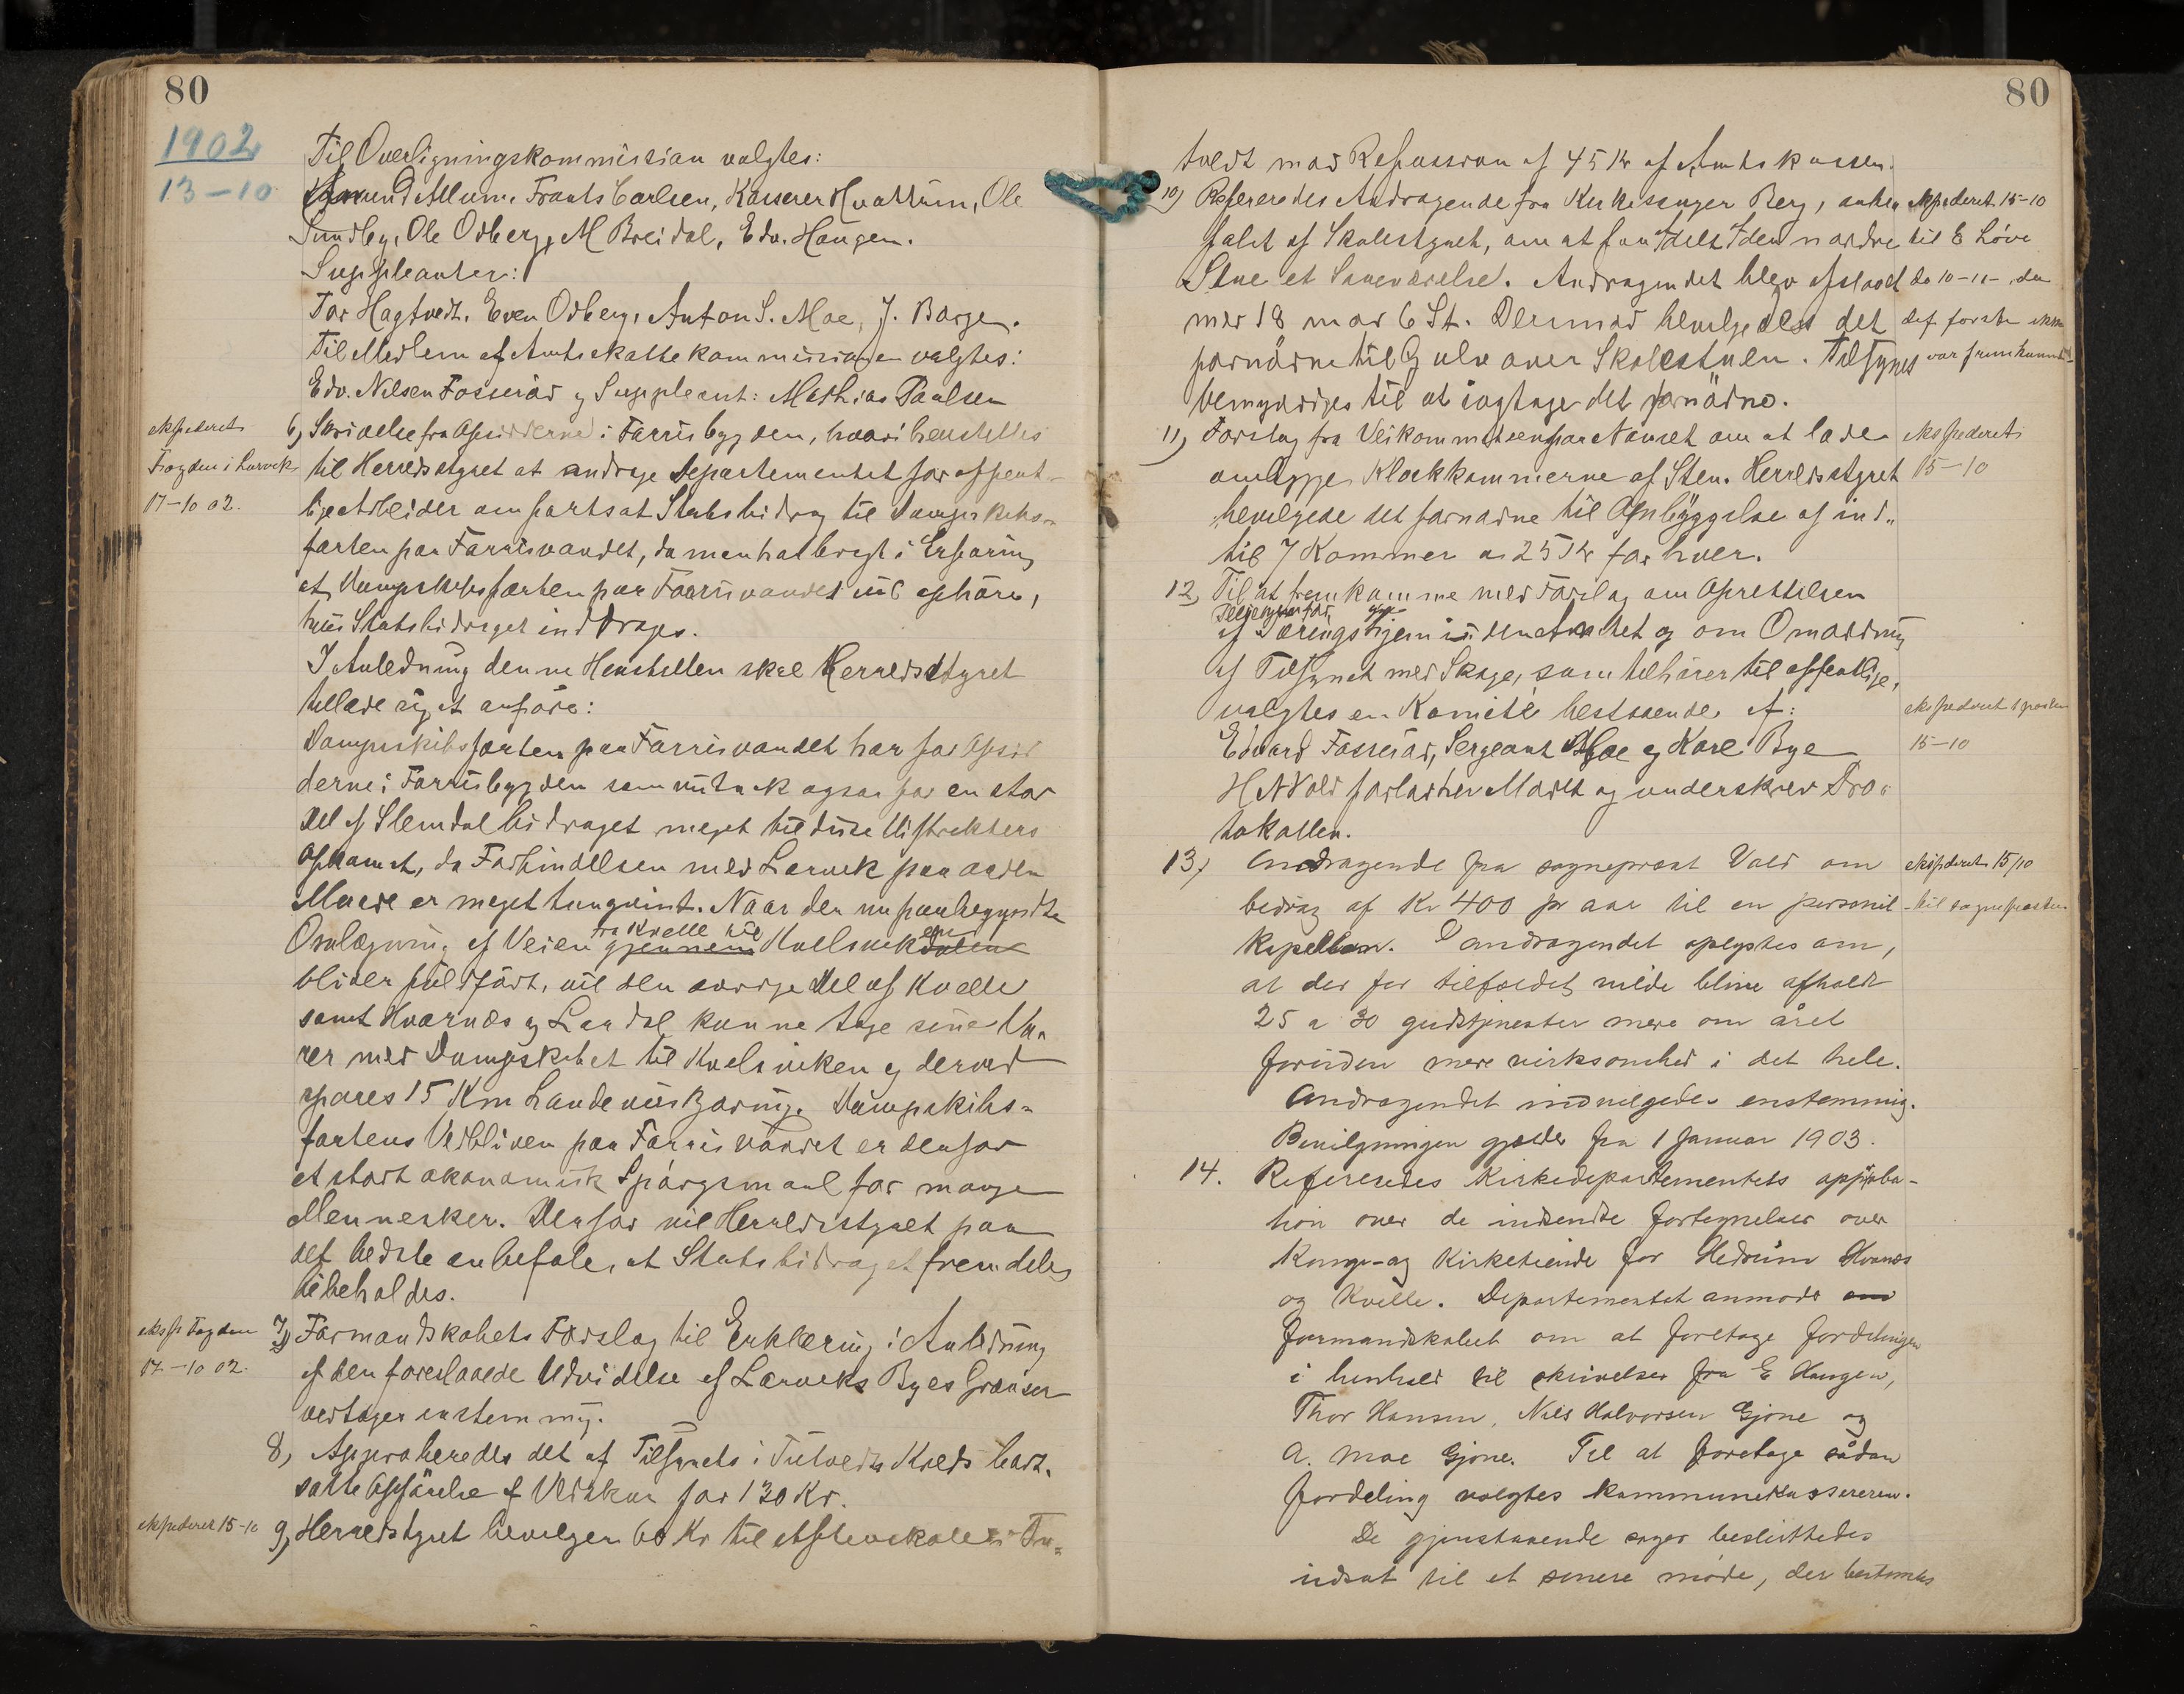 80
1902
13-10
Til Overligningskommission valgtes:
Amund Allum, Frants Carlsen, Kasserer Hvattum, Ole
Sundby, Ole Odberg, M Breidal, Edv. Haugen.
Suppleanter:
Tor Hagtvedt, Even Odberg, Anton S. Moe, J. Barge.
Til Medlem af Amtsskattekommissionen valgtes:
Edv. Nilsen Fosserød og Suppleant: Mathias Paulsen
ekspederet
Fogden i Larvik
17-10 02.
6, Skrivelse fra Opsidderne i Farrisbygden, hvori henstilles
til Herredsstyret at andrage Departementet for offent-
lige Arbeider om fortsat Statsbidrag til Dampskibs-
farten paa Farrisvandet, da man har bragt i Erfaring
at Dampskibsfarten paa Farrisvandet vil ophøre,
hvis Statsbidraget inddrages.
I Anledning denne Henstillen skal Herredsstyret
tillade sig at anføre:
Dampskibsfarten paa Farrisvandet har for Opsid
derne i Farrisbygden som nu tak ogsaa for en stor
Del af Slemdal bidraget meget til disse Distrikters
Opkomst, da Forbindelsen med Larvik paa anden
Maade er meget tungvint. Naar den nu paabegyndte
Omlægning af Veien gjennem fra Kvelle til Kvelsvikdalen en
bliver fuldført, vil den øvrige Del af Kvelle
samt Hvarnes og Lardal kunne tage sine Va-
rer med Dampskibet til Kvelsviken og derved
spares 15 Km Landeveiskjøring. Dampskibs-
fartens Vedbliven paa Farrisvandet er derfor
et stort økonomisk Spørgsmaal for mange
Mennesker. Derfor vil Herredsstyret paa
det bedste anbefale, at Statsbidraget fremdeles
bibeholdes.
eksp Fogden
17-10 02.
7, Formandskabets Forslag til Erklæring i Anledning
af den foreslaaede Udvidelse af Larviks Byes Grænser
vedtages enstemmig.
8, Approberedes det af Tilsynets i Tutvedts Kreds bort-
satte Opførelse af Vedskur for 130 Kr.
ekspederet 15-10
9, Herredsstyret bevilger 60 Kr til Aftenskole i Tu-
80
tvedt mod Refussion af 45 Kr af Amtskassen.
10, Refereredes Andragende fra Kirkesanger Berg, anbe
ekspederet 15-10
falet af Skolestyret, om at faa delt den nordre
til E Løve
Stue et Soveværelse. Andragendet blev afslaaet
do 10-11-, da
med 18 mod 6 St. Derimod bevilgedes det
det første ikke
fornødne til Gulv over Skolestuen. Tilsynet
var fremkommet
bemyndiges til at iagtage det fornødne.
11, Forslag fra Veikommissen paa Nanset om at lade
ekspederet
ombygge Kloakkummerne af Sten. Herredsstyret
15-10
bevilgede det fornødne til Ombyggelse af ind-
til 7 Kummer a 25 Kr for hver.
12, Til at fremkomme med Forslag om Oprettelsen
af Tæringshjem i den Anledhet og om Omordning
af Tilsynet med Skoge, som tilhører til offentlige,
valgtes en Komité bestaaende af:
ekspederet
15-10
Edvard Fosserød, Sergeant Moe og Karl Bye
H N Vold forlader Mødet og underskrev Pro-
tokollen.
13, Andragende fra sogneprest Vold om
ekspederet 15/10
bidrag af Kr 400 pr aar til en personel
til sognepresten
kapellan. I andragendet oplystes om,
at der for tilfældet vilde blive afholdt
25 a 30 gudstjenester mere om året
foruden mere virksomhed i det hele.
Andragendet indvilgedes enstemmig.
Bevilgningen gjælder fra 1 Januar 1903.
14. Refereredes Kirkedepartementets approba-
tion over de indsendte fortegnelser over
Konge- og Kirketiende for Hedrum Hvarnes
og Kvelle. Departementet anmoder om
formandskabet om at foretage fordelingen
i henhold til skrivelser fra E Haugen,
Thor Hansen, Nils Halvorsen Gjone og
A. Moe Gjone. Til at foretage sådan
fordeling valgtes kommunekassereren.
De gjenstaaende sager besluttedes
udsat til et senere møde, der bestemtes